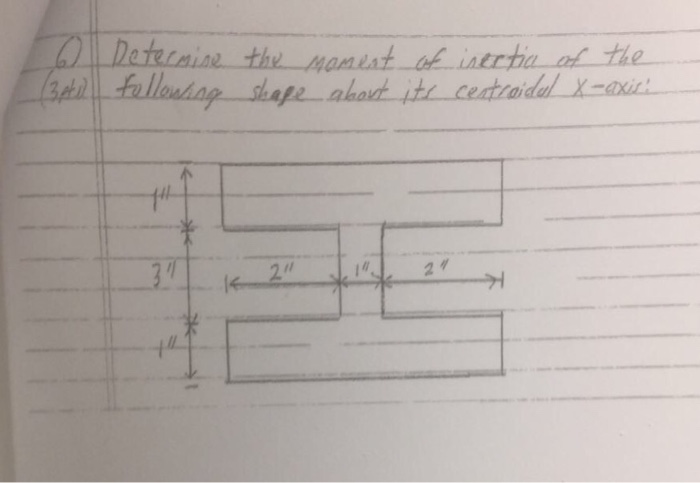 6) Determine the moment of inertia of the
(3pts) following shape about its centroidal X-axis:
1"
3"
2" 1" 2"
1"